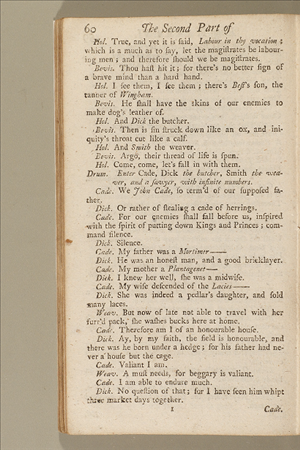 60 The Second Part of
Hol. True, and yet it is said, Labour in thy vocation;
which is a much as to say, let the magistrates be labour-
ing men; and therefore should we be magistrates.
Bevis. Thou hast hit it; for there's no better sign of
a brave mind than a hard hand.
Hol. I see them, I see them; there's Best's son, the
tanner of Wingham.
Bevis. He shall have the skins of our enemies to
make dog's leather of.
Hol. And Dick the butcher.
Bevis. Then is sin struck down like an ox, and ini-
quity's throat cut like a calf.
Hol. And Smith the weaver.
Bevis. Argo, their thread of life is spun.
Hol. Come, come, let's fall in with them.
Drum. Enter Cade, Dick the butcher, Smith the wea-
ver, and a sawyer, with infinite numbers.
Cade. We John Cade, so term'd of our supposed fa-
ther.
Dick. Or rather of stealing a cade of herrings.
Cade. For our enemies shall fall before us, inspired
with the spirit of putting down Kings and Princes; com-
mand silence.
Dick. Silence.
Cade. My father was a Mortimer——
Dick. He was an honest man, and a good bricklayer.
Cade. My mother a Plantagenet—
Dick. I knew her well, she was a midwife.
Cade. My wife descended of the Lacies——
Dick. She was indeed a pedlar's daughter, and sold
many laces.
Weav. But now of late not able to travel with her
furr'd pack, she washes bucks here at home.
Cade. Therefore am I of an honourable house.
Dick. Ay, by my faith, the field is honourable, and
there was he born under a hedge; for his father had ne-
ver a house but the cage.
Cade. Valiant I am.
Weav. A must needs, for beggary is valiant.
Cade. I am able to endure much.
Dick. No question of that; for I have seen him whipt
three market days together.
1 Cade.